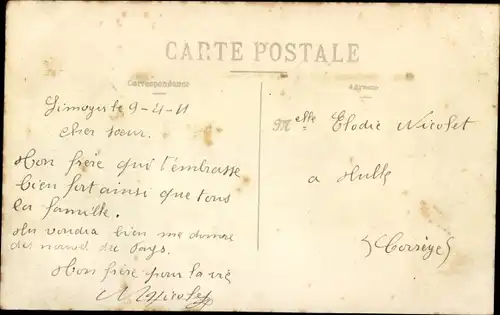 CARTE POSTALE
Correspondance
Adresse
Limoges le 9-4-11
Cher sœur.
Mon frère qui t'embrasse
bien fort ainsi que tous
la famille.
tu voudra bien me donner
des nouvel du Pays.
Mon frère pour la vie
Nicolet
Melle Elodie Nicolet
a
(Corrèze)